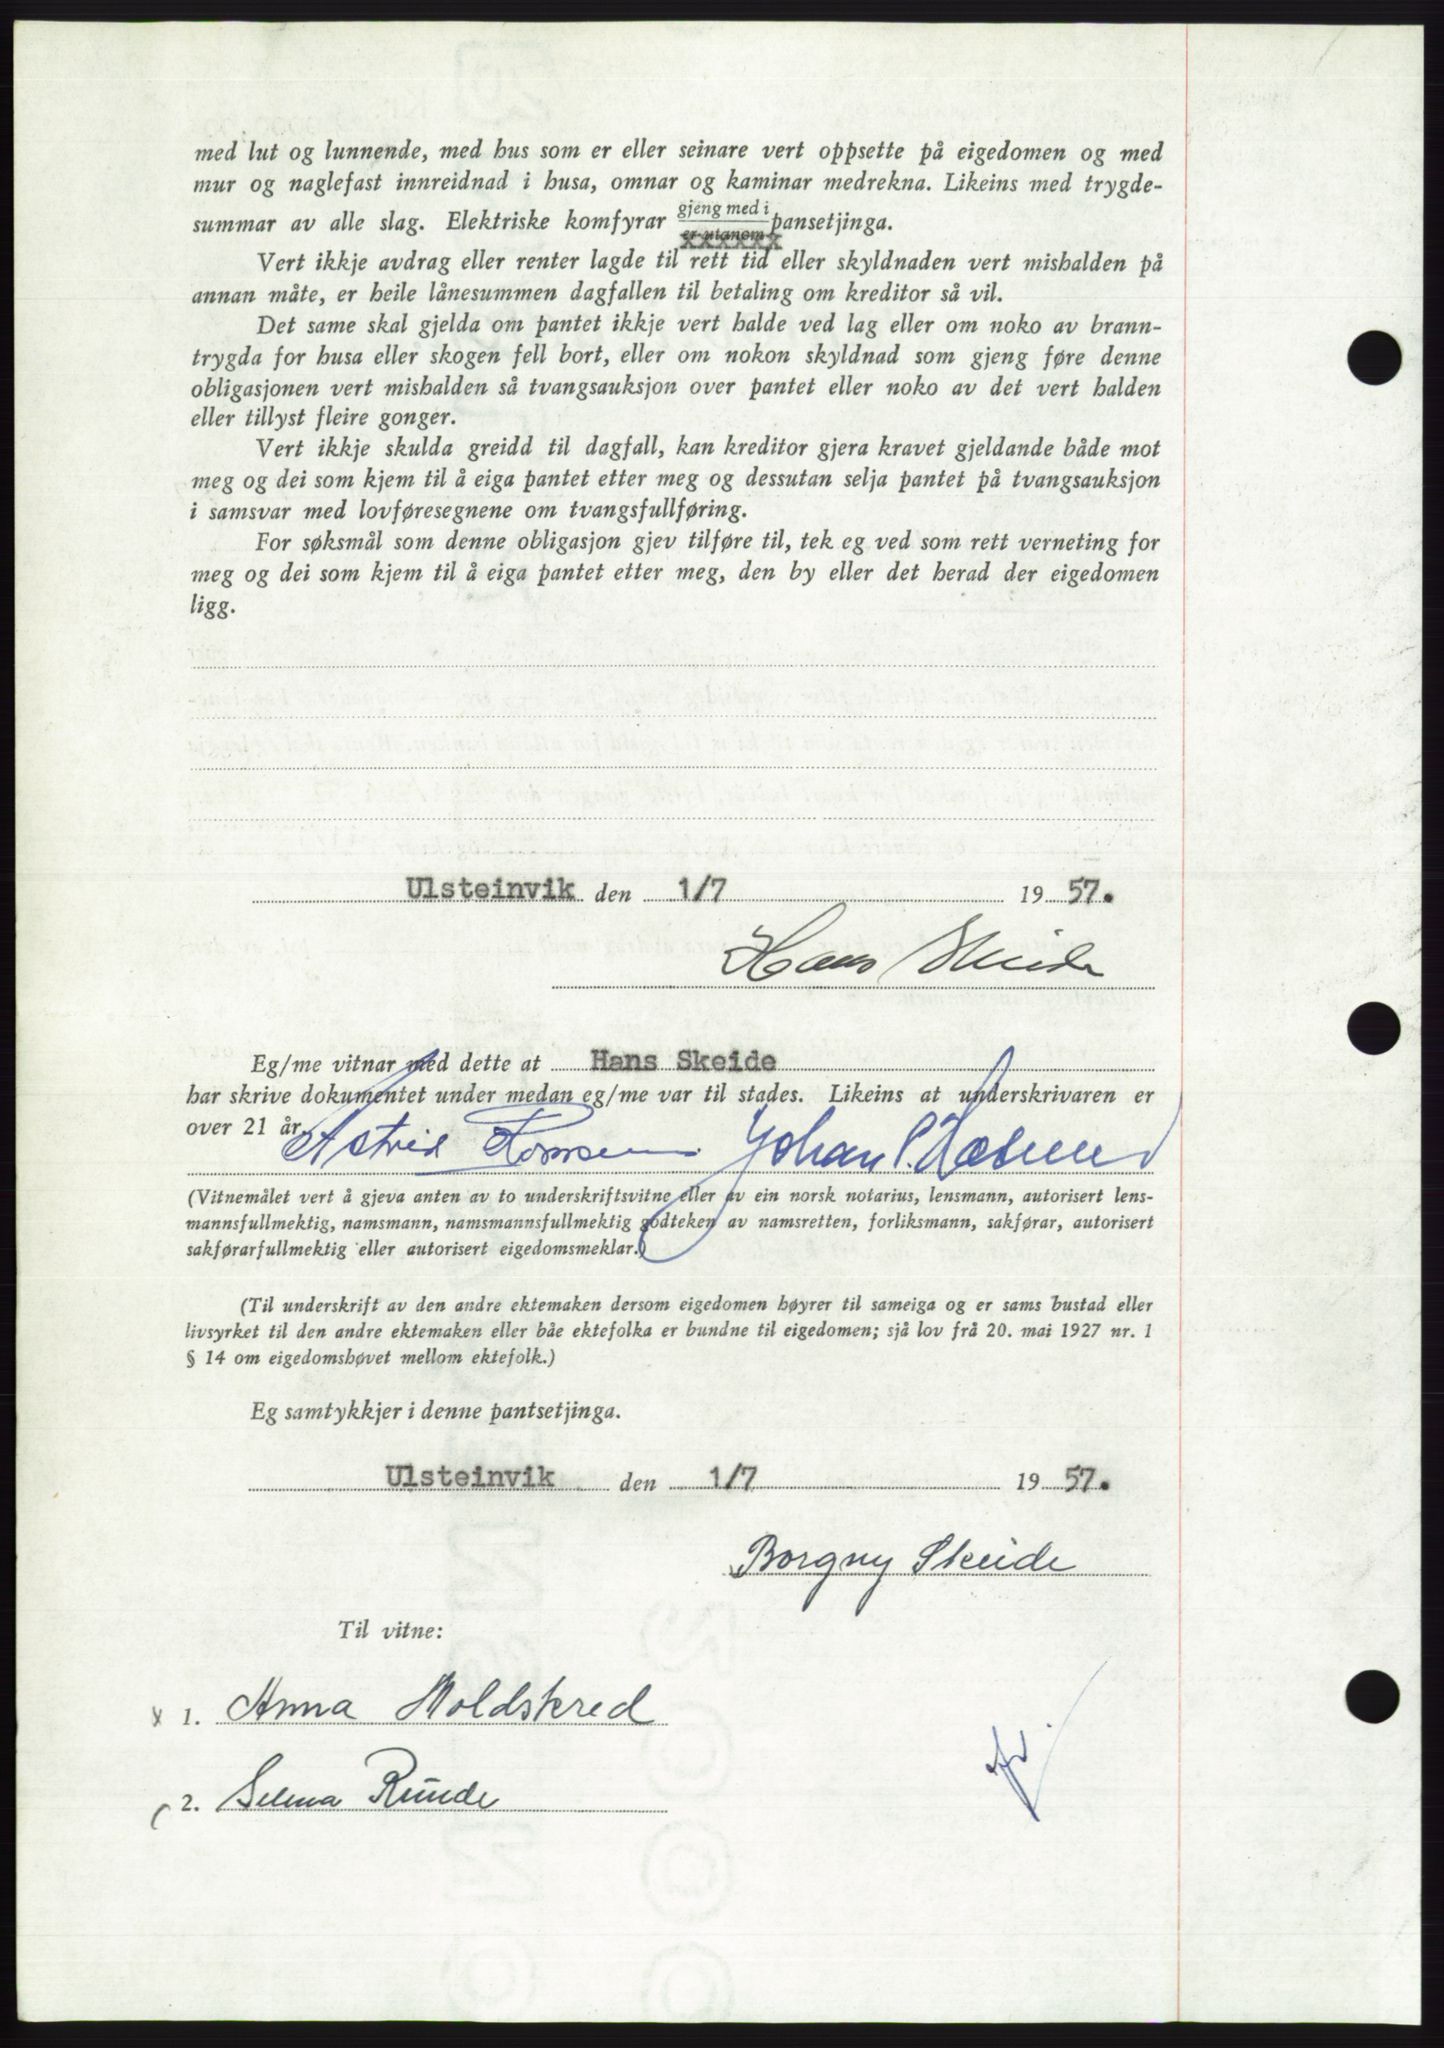 med lut og lunnende, med hus som er eller seinare vert oppsette på eigedomen og med
mur og naglefast innreidnad i husa, omnar og kaminar medrekna. Likeins med trygde-
summar av alle slag. Elektriske komfyrar gjeng med i pansetjinga.
er utanom
xxxxxx
Vert ikkje avdrag eller renter lagde til rett tid eller skyldnaden vert mishalden på
annan måte, er heile lånesummen dagfallen til betaling om kreditor så vil.
Det same skal gjelda om pantet ikkje vert halde ved lag eller om noko av brann-
trygda for husa eller skogen fell bort, eller om nokon skyldnad som gjeng føre denne
obligasjonen vert mishalden så tvangsauksjon over pantet eller noko av det vert halden
eller tillyst fleire gonger.
Vert ikkje skulda greidd til dagfall, kan kreditor gjera kravet gjeldande både mot
meg og dei som kjem til å eiga pantet etter meg og dessutan selja pantet på tvangsauksjon
i samsvar med lovføresegnene om tvangsfullføring.
For søksmål som denne obligasjon gjev tilføre til, tek eg ved som rett verneting for
meg og dei som kjem til å eiga pantet etter meg, den by eller det herad der eigedomen
ligg.
Ulsteinvik den 1/7 19 57.
Hans Skeide
Eg/me vitnar med dette at Hans Skeide
har skrive dokumentet under medan eg/me var til stades. Likeins at underskrivaren er
over 21 år.
Astrid Johan P.
(Vitnemålet vert å gjeva anten av to underskriftsvitne eller av ein norsk notarius, lensmann, autorisert lens-
mannsfullmektig, namsmann, namsmannsfullmektig godteken av namsretten, forliksmann, sakførar, autorisert
sakførarfullmektig eller autorisert eigedomsmeklar.)
(Til underskrift av den andre ektemaken dersom eigedomen høyrer til sameiga og er sams bustad eller
livsyrket til den andre ektemaken eller båe ektefolka er bundne til eigedomen; sjå lov frå 20. mai 1927 nr. 1
§ 14 om eigedomshøvet mellom ektefolk.)
Eg samtykkjer i denne pantsetjinga.
Ulsteinvik den 1/7 19 57.
Borgny Skeide
Til vitne:
x 1. Anna Holdskred
2. Selma Runde